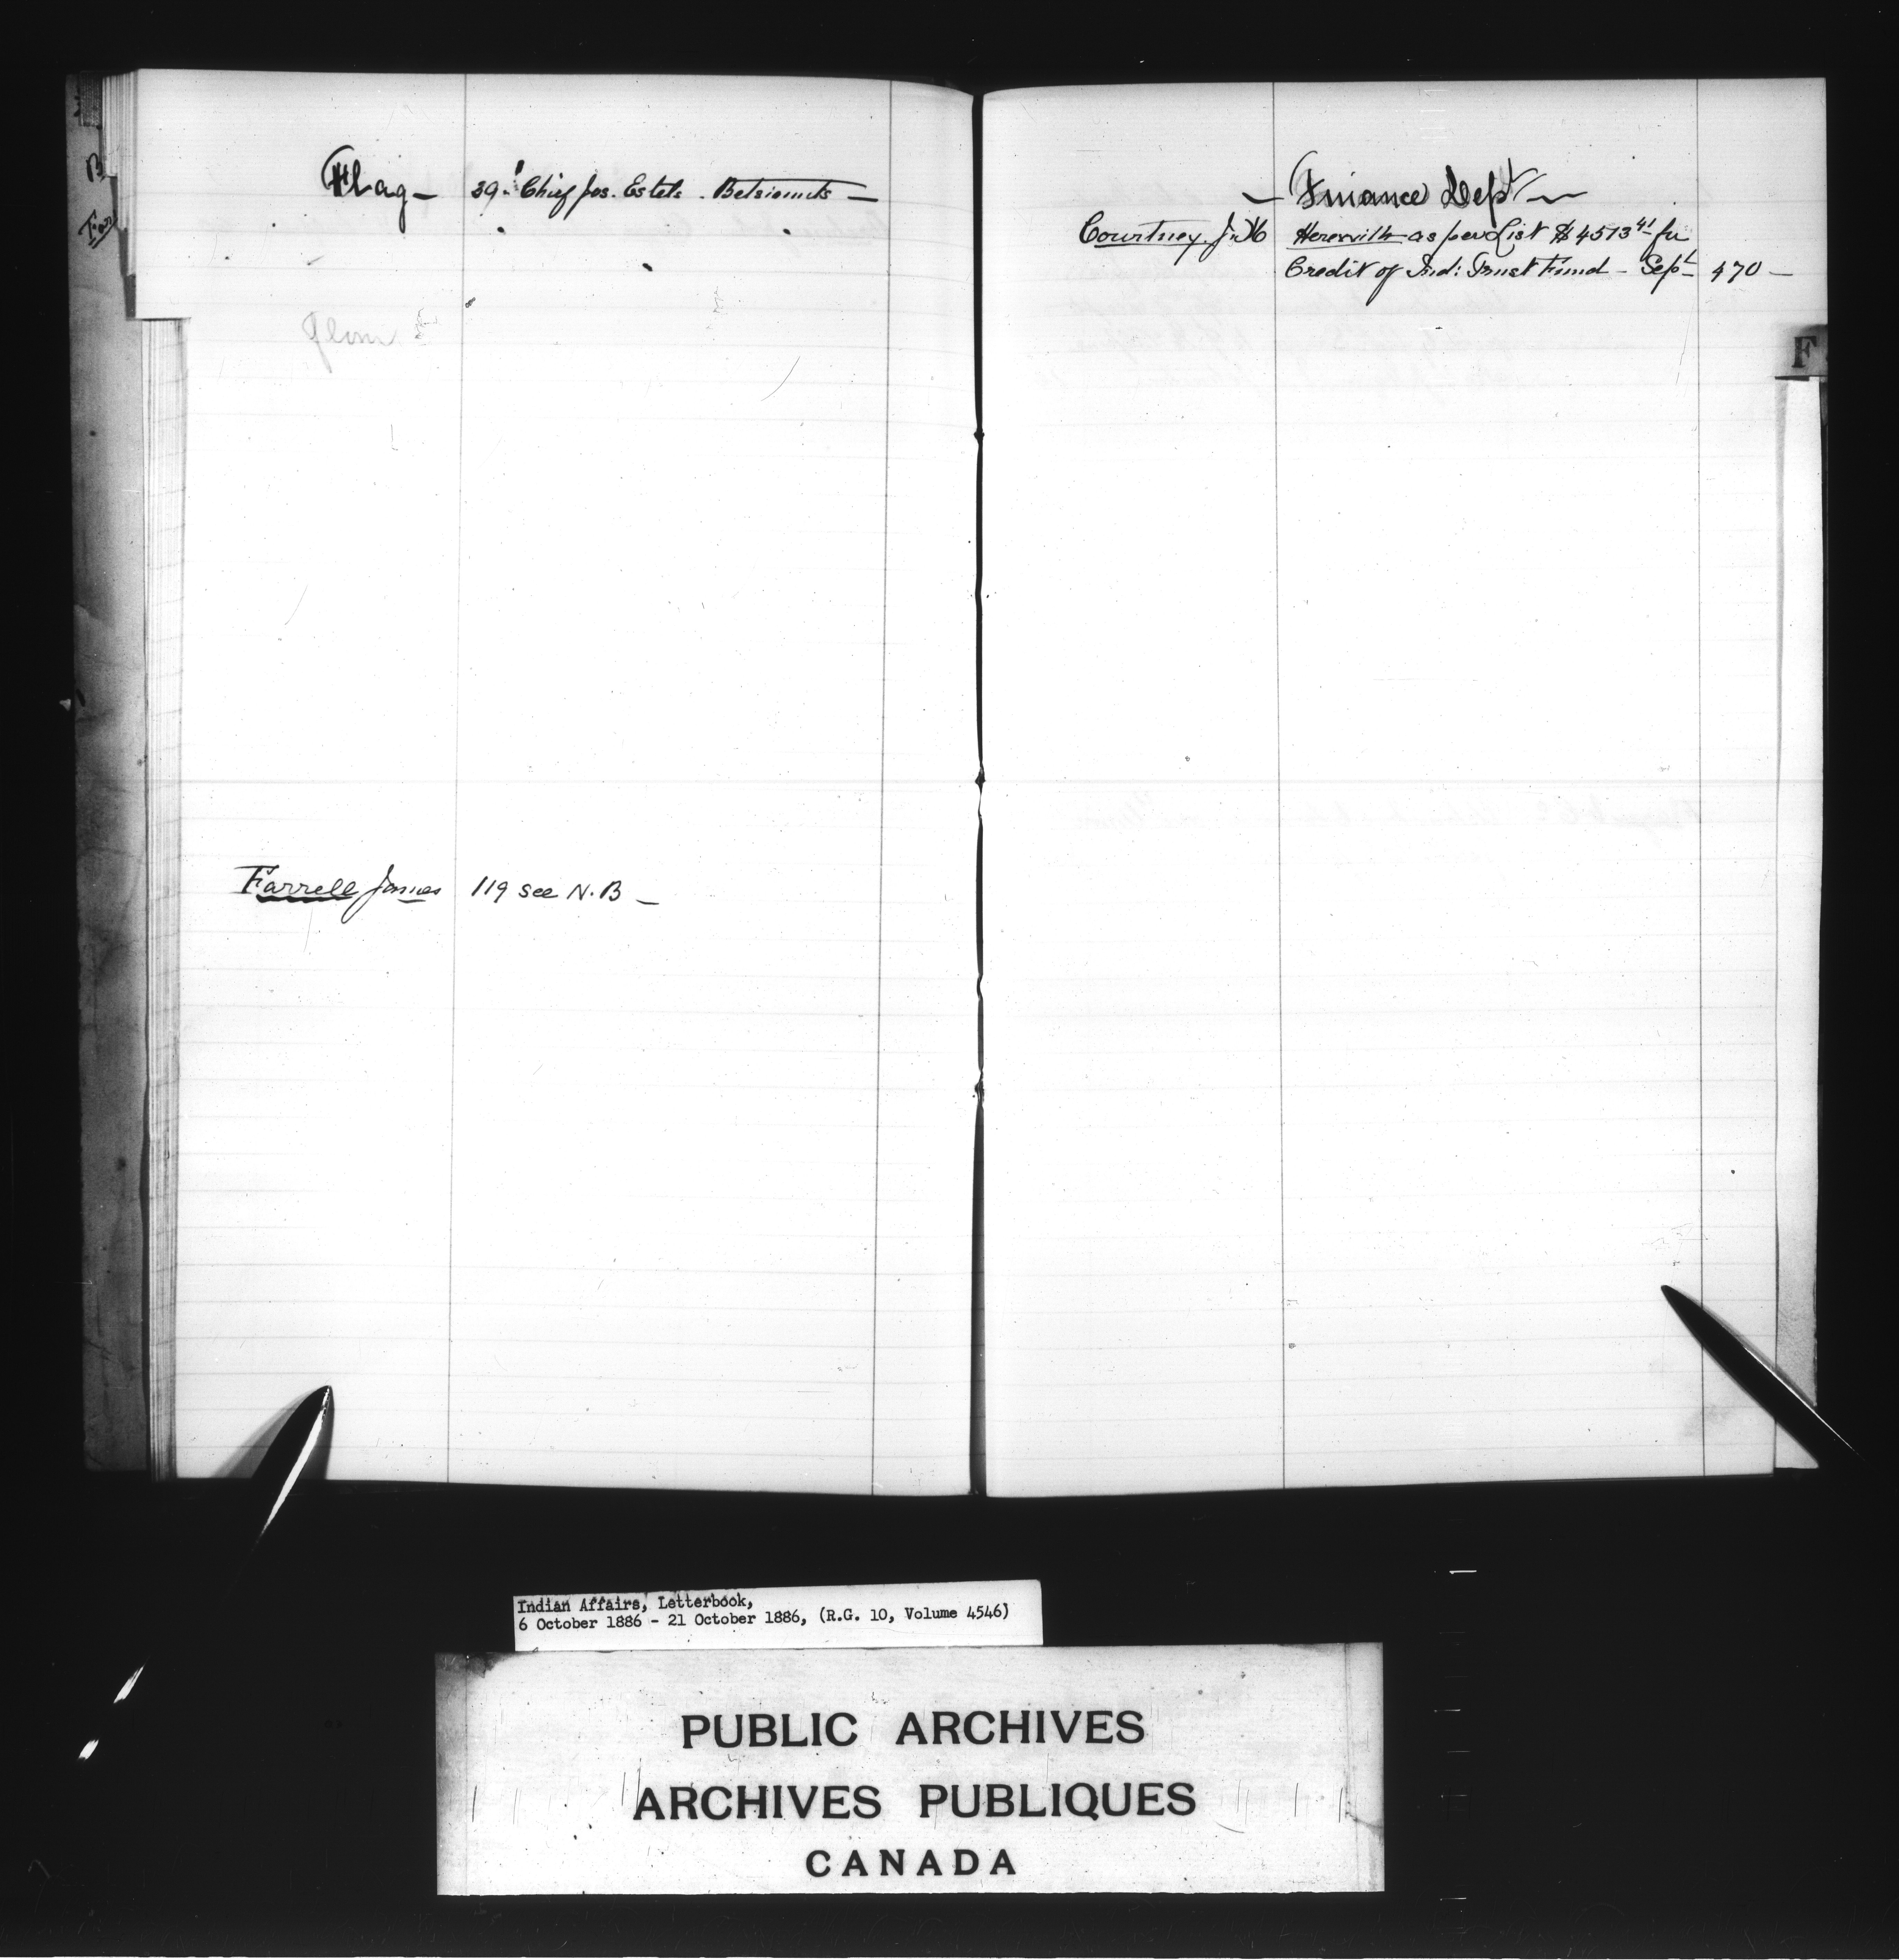 B
Far
Flag - 39. Chief Jos. Estels. Betsiamits -
Farrell James 119 See N.B -
Finance Dept
Courtney J. M Herewith as per List $4513 41 for
Credit of Ind: Trust Fund - Sept 470 -
F
Indian Affairs, Letterbook,
6 October 1886 - 21 October 1886, (R.G. 10, Volume 4546)
PUBLIC ARCHIVES
ARCHIVES PUBLIQUES
CANADA